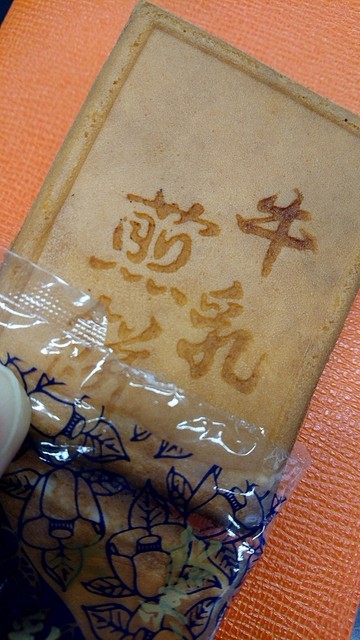 牛乳
煎餅